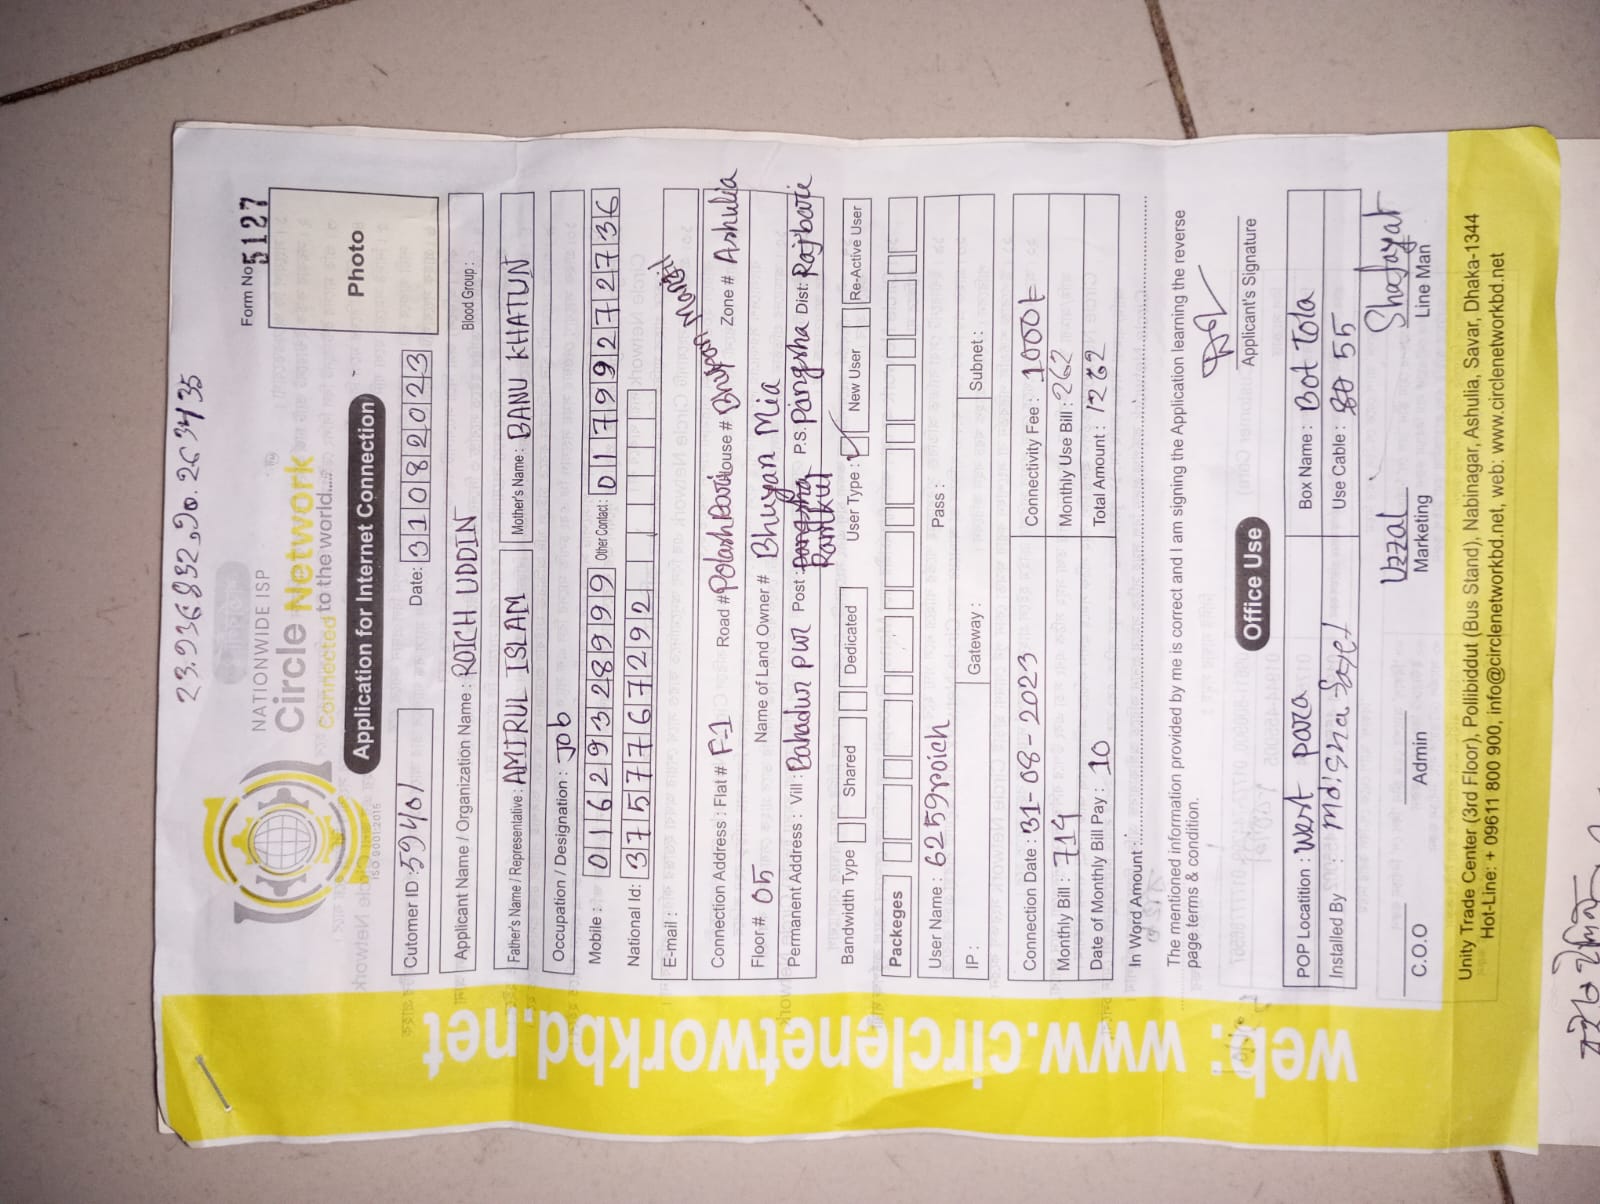 23.936832,90.263435
NATIONWIDE ISP
Circle Network
Connected to the world.....
ISO 9001:2015
Form No 5127
Application for Internet Connection
Photo
Cutomer ID : 59401
Date: 31082023
Applicant Name / Organization Name : ROICH UDDIN
Blood Group :
Father's Name / Representative : AMIRUL ISLAM
Mother's Name : BANU KHATUN
Occupation / Designation : Job
Mobile : 01629328999 Other Contact: 01799272736
National Id: 3757767292
E-mail :
Connection Address : Flat # F-1 Road # Polash Bari House # Bhuyan Manjil Zone # Ashulia
Floor # 05 Name of Land Owner # Bhuyan Mia
Permanent Address : Vill : Bahadur pur Post : P.S.: Pangsha Dist: Rajbari
Bandwidth Type Shared Dedicated User Type : New User Re-Active User
Packeges
User Name : 6259roich Pass :
IP : Gateway : Subnet :
Connection Date : 31-08-2023 Connectivity Fee : 1000t
Monthly Bill : 714 Monthly Use Bill : 262
Date of Monthly Bill Pay : 10 Total Amount : 1262
In Word Amount :
The mentioned information provided by me is correct and I am signing the Application learning the reverse
page terms & condition.
Applicant's Signature
Office Use
POP Location : West para Box Name : Bot tola
Installed By : Use Cable : 55
Uzzal Shafayat
C.O.O Admin Marketing Line Man
Unity Trade Center (3rd Floor), Pollibiddut (Bus Stand), Nabinagar, Ashulia, Savar, Dhaka-1344
Hot-Line: + 09611 800 900, info@circlenetworkbd.net, web: www.circlenetworkbd.net
web: www.circlenetworkbd.net